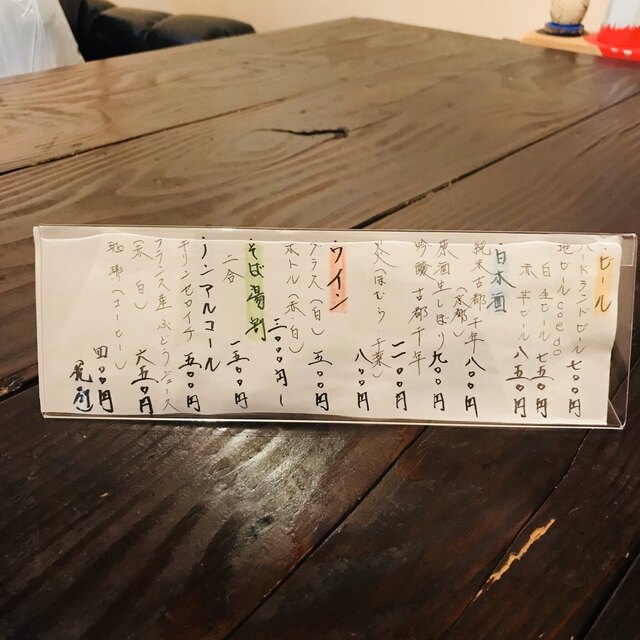 ビール
ハートランドビール 七〇〇円
地ビール coedo
白 生ビール 七五〇円
赤 半ビール 八五〇円
日本酒
純米古都千年 八〇〇円
(京都)
原酒生しぼり 九〇〇円
吟醸 古都千年 一二〇〇円
炎(ほむら・千葉) 八〇〇円
ワイン
グラス(白) 五〇〇円
ボトル(赤 白) 三〇〇〇円ー
そば湯割
二合 一五〇〇円
・ノンアルコール
キリンゼロイチ 五〇〇円
フランス産 ぶどうジュース
(赤・白) 六五〇円
珈琲(コーヒー) 四〇〇円